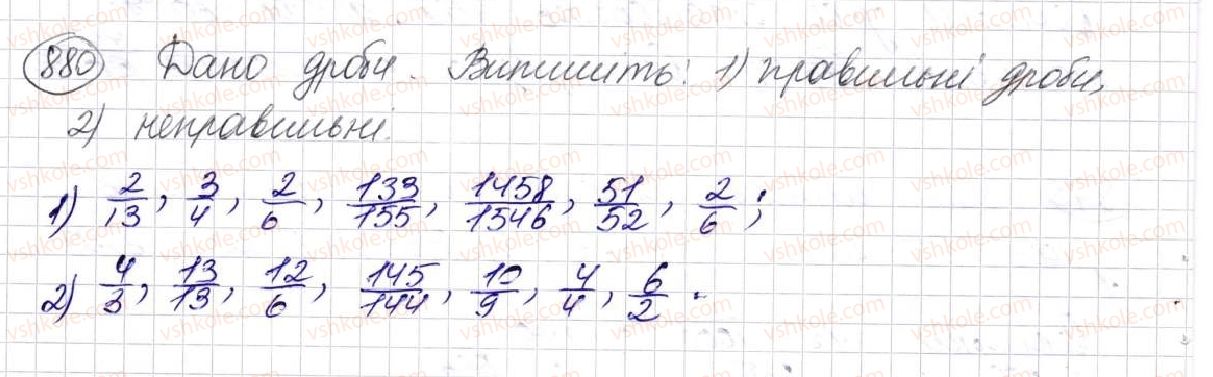 880 Дано дроби. Випишіть: 1) правильні дроби,
2) неправильні.
1) 2/13, 3/4, 2/6, 133/155, 1458/1546, 51/52, 2/6;
2) 4/3, 13/13, 12/6, 145/144, 10/9, 4/4, 6/2.